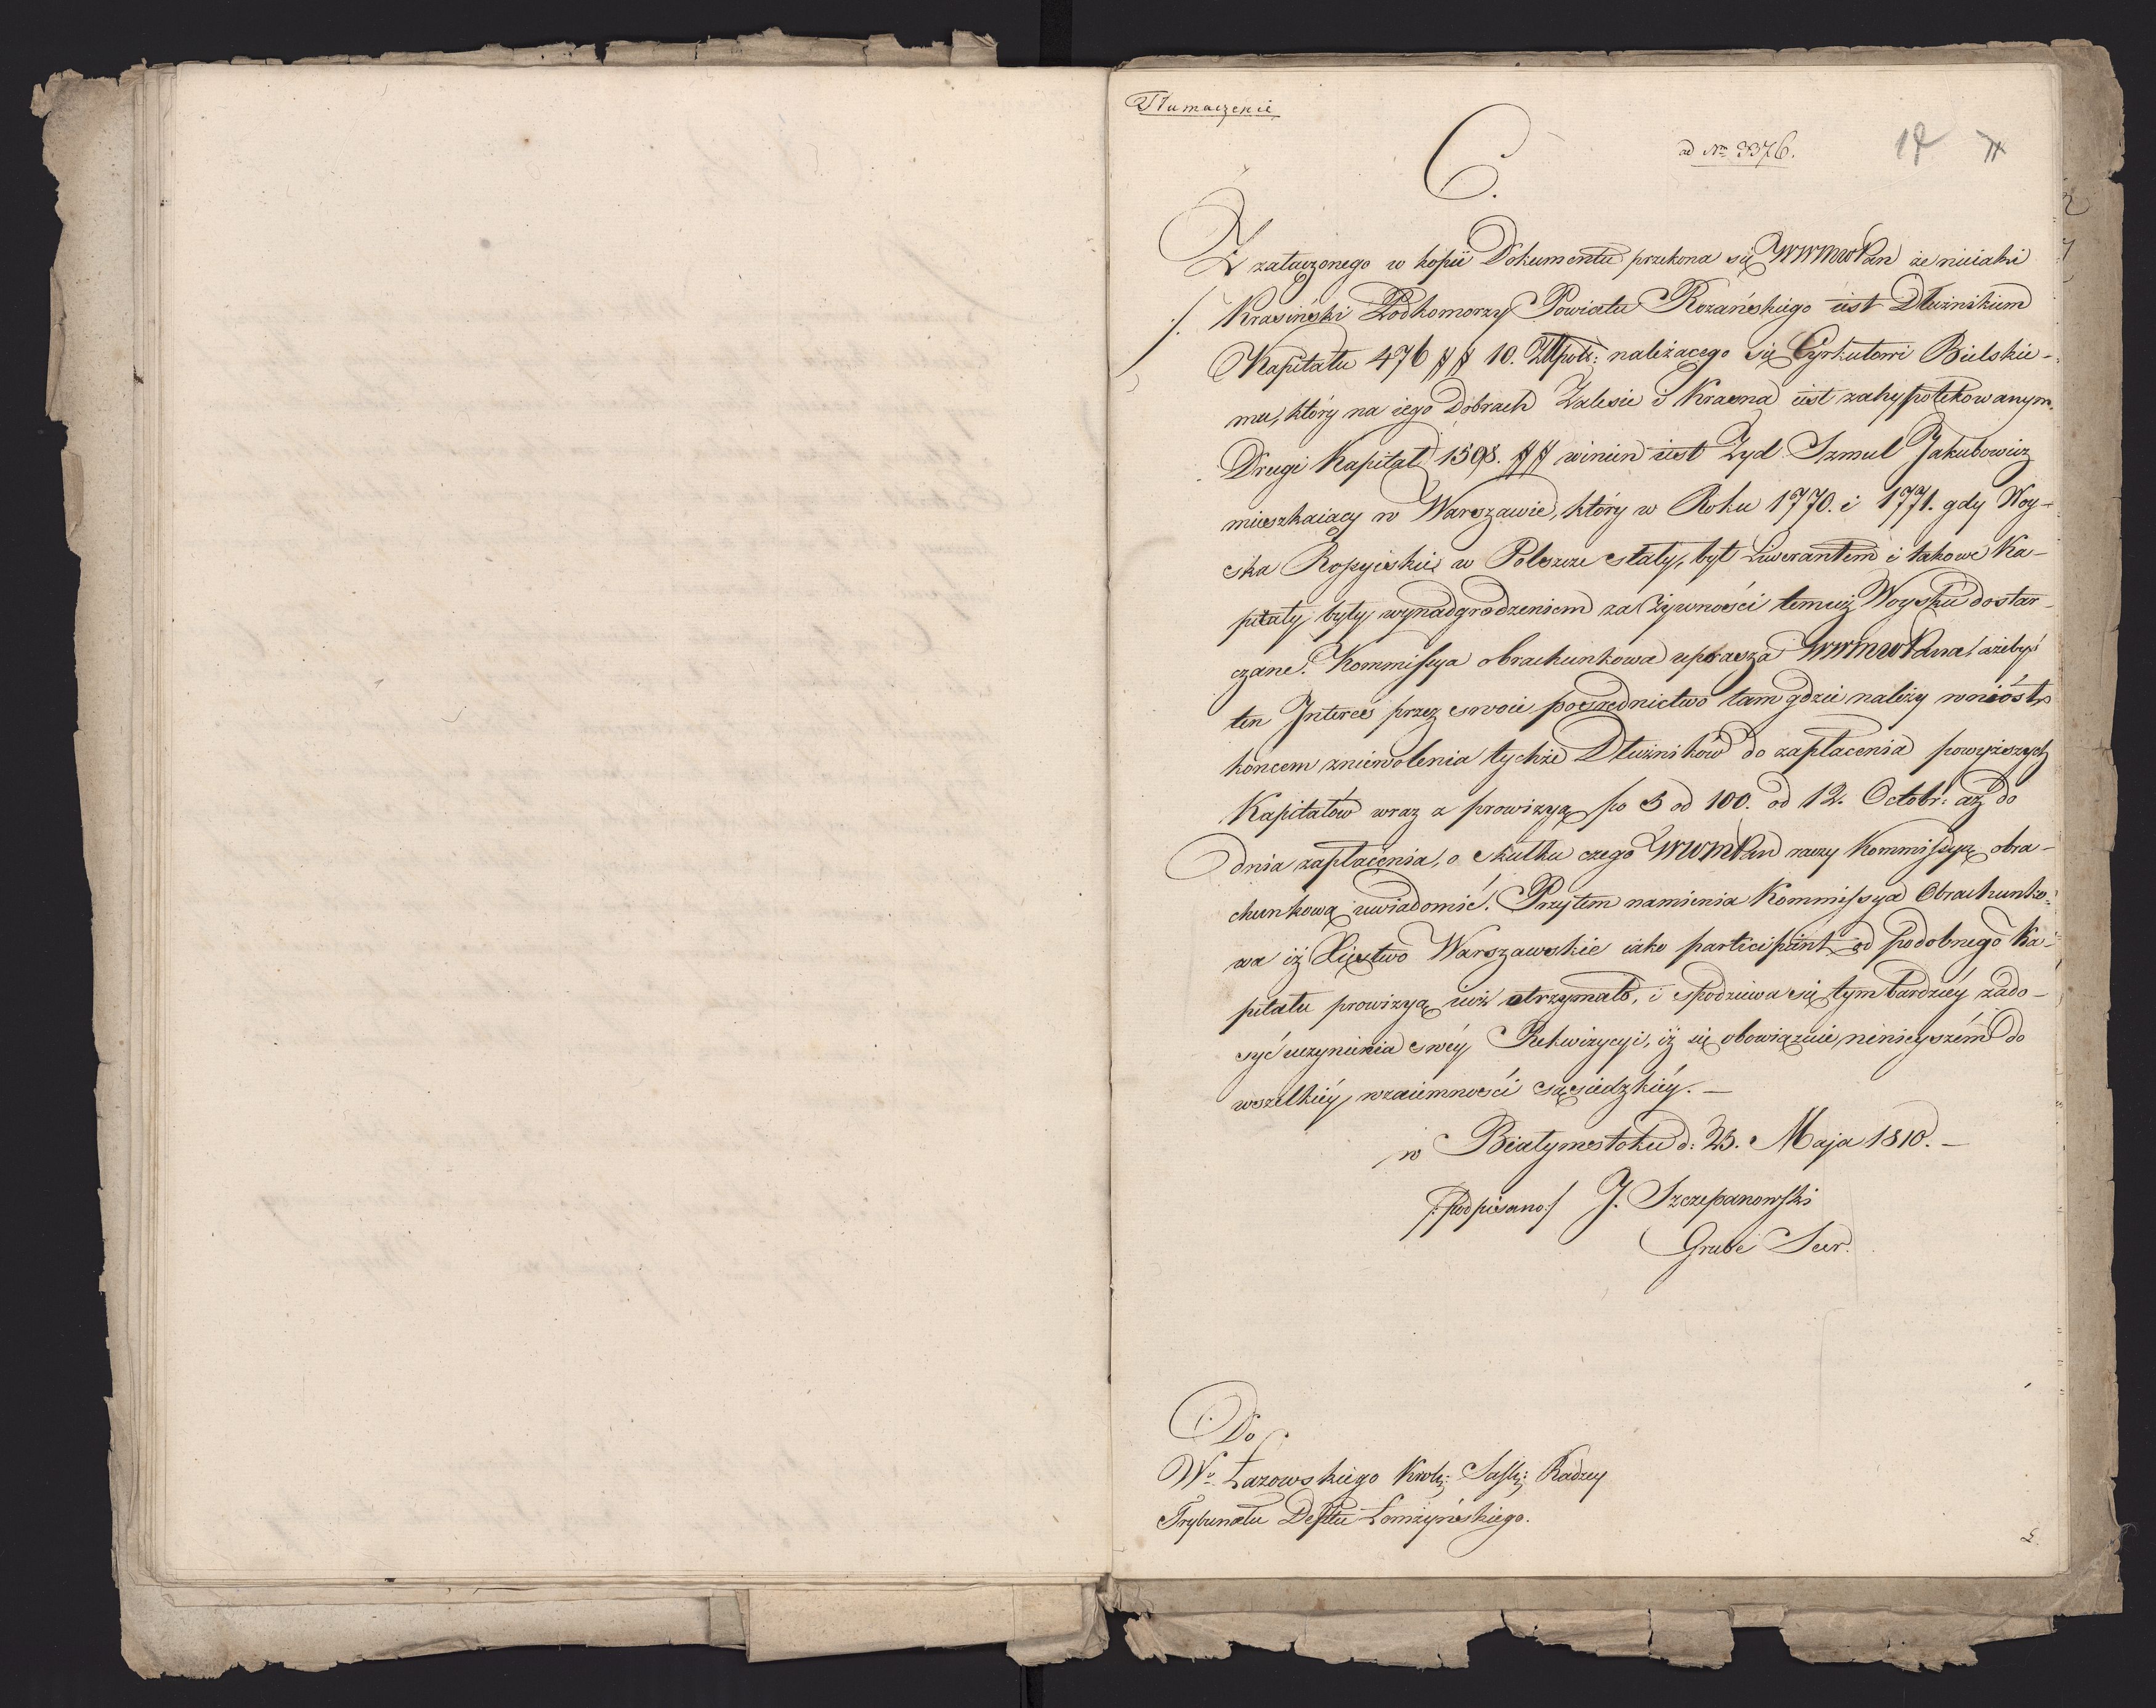 Tłumaczenie
C.
ad Nrm 3376.
17
Z załączonego w kopii Dokumentu przekona się WWMWPan że nieiaki
Krasiński Podkomorzy Powiatu Rozańskiego iest Dłużnikiem
Kapitału 476 ## 10. Złłpols: należącego się Cyrkułowi Bielskie-
mu, który na iego Dobrach Zalesie i Krasna iest zahypotekowanym.
Drugi Kapitał 1598. ## winien iest Zyd Szmul Jakubowicz
mieszkaiący w Warszawie, który w Roku 1770. i 1771. gdy Woy-
ska Rossyiskie w Polszcze stały, był Liwerantem i takowe Ka-
pitały były wynadgrodzeniem za Żywności temuż Woysku dostar-
czane. Kommissya obrachunkowa uprasza WWMWPana! ażebyś
ten Interes przez swoie pośrzednictwo tam gdzie należy wniósł,
końcem zniewolenia tychże Dłużników do zapłacenia powyższych
Kapitałów wraz z prowizyą po 5 od 100. od 12. Octobr: aż do
dnia zapłacenia, o skutku czego WWMPan raczy Kommissyą obra-
chunkową uwiadomić. Przytem namienia Kommissya Obrachunko-
wa iż Xięstwo Warszawskie iako participant od podobnego Ka-
pitału prowizyą iuż otrzymało, i spodziewa się tym bardziéy zado-
syć uczynienia swéy Rekwizycyi, iż się obowiązuie ninieyszém do
wszelkiéy wzaiemności sąsiedzkiéy. —
w Białymstoku d: 25. Maja 1810. —
/:podpisano:/ J. Szczepanowski
Grube Secr.
Do
Wo Łazowskiego Krols: Saski: Radzcy
Trybunału Depttu Łomżyńskiego.